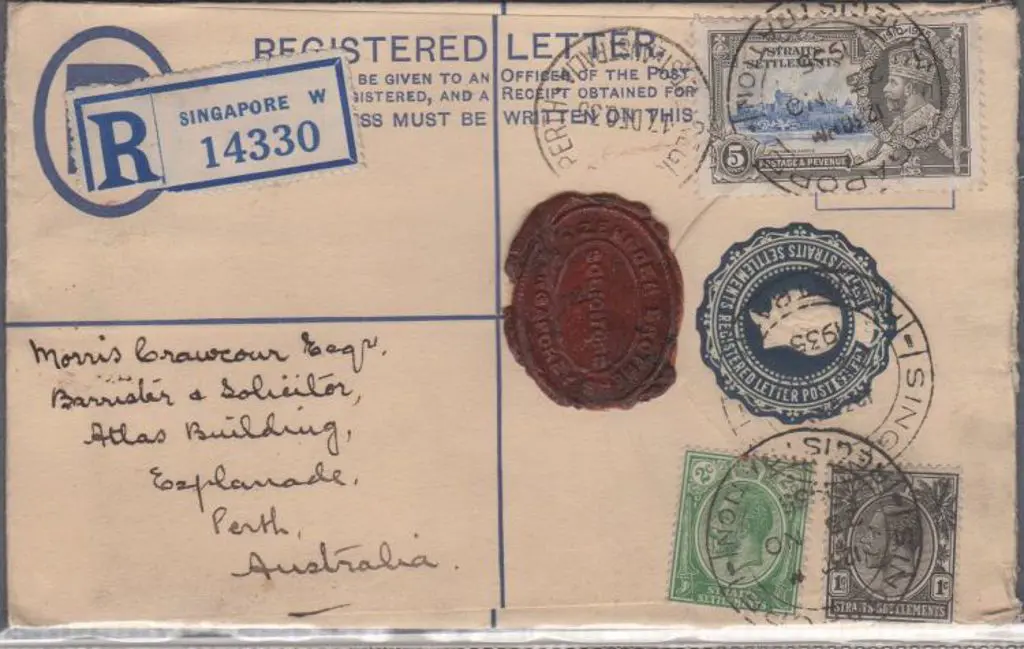 REGISTERED LETTER.
BE GIVEN TO AN OFFICER OF THE POST
GISTERED, AND A RECEIPT OBTAINED FOR
ESS MUST BE WRITTEN ON THIS
R
SINGAPORE W
14330
PERTH
17 DEC 35
STRAITS SETTLEMENTS
5
POSTAGE & REVENUE
STRAITS SETTLEMENTS REGISTERED LETTER POST
1935
SING
Morris Crawcour Esqr.
Barrister & Solicitor,
Atlas Building,
Esplanade,
Perth,
Australia.
2c
SETTLEMENTS
1c
1c
STRAITS SETTLEMENTS